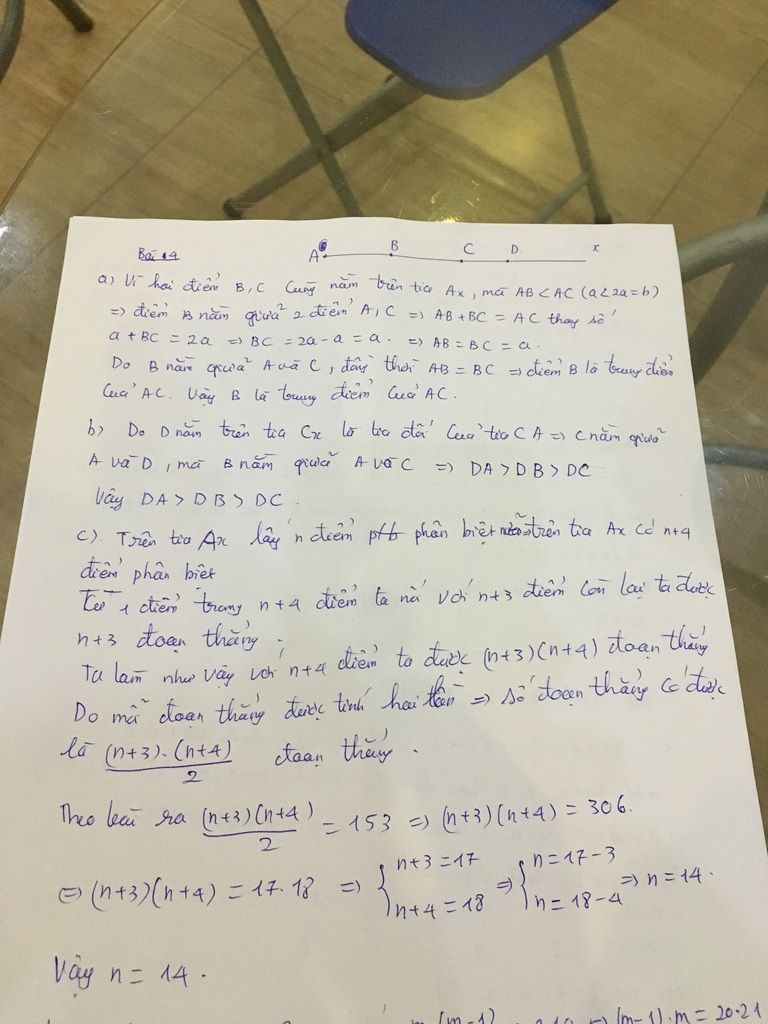 Bài 4
A B C D x
a) Vì hai điểm B, C cùng nằm trên tia Ax, mà AB < AC (a < 2a = b)
=> điểm B nằm giữa 2 điểm A, C => AB + BC = AC thay số
a + BC = 2a => BC = 2a - a = a. => AB = BC = a.
Do B nằm giữa A và C, đồng thời AB = BC => điểm B là trung điểm
của AC. Vậy B là trung điểm của AC.
b) Do D nằm trên tia Cx là tia đối của tia CA => C nằm giữa
A và D, mà B nằm giữa A và C => DA > DB > DC
Vậy DA > DB > DC
c). Trên tia Ax lấy n điểm phân biệt trên tia Ax có n+4
điểm phân biệt
Từ 1 điểm trong n+4 điểm ta nối với n+3 điểm còn lại ta được
n+3 đoạn thẳng.
Ta làm như vậy với n+4 điểm ta được (n+3)(n+4) đoạn thẳng
Do mỗi đoạn thẳng được tính hai lần => số đoạn thẳng có được
là (n+3).(n+4)/2 đoạn thẳng.
Theo bài ra (n+3)(n+4)/2 = 153 => (n+3)(n+4) = 306.
=> (n+3)(n+4) = 17.18 => { n+3 = 17 n+4 = 18 => { n = 17-3 n = 18-4 => n = 14.
Vậy n = 14.
m(m-1) => (m-1).m = 20.21